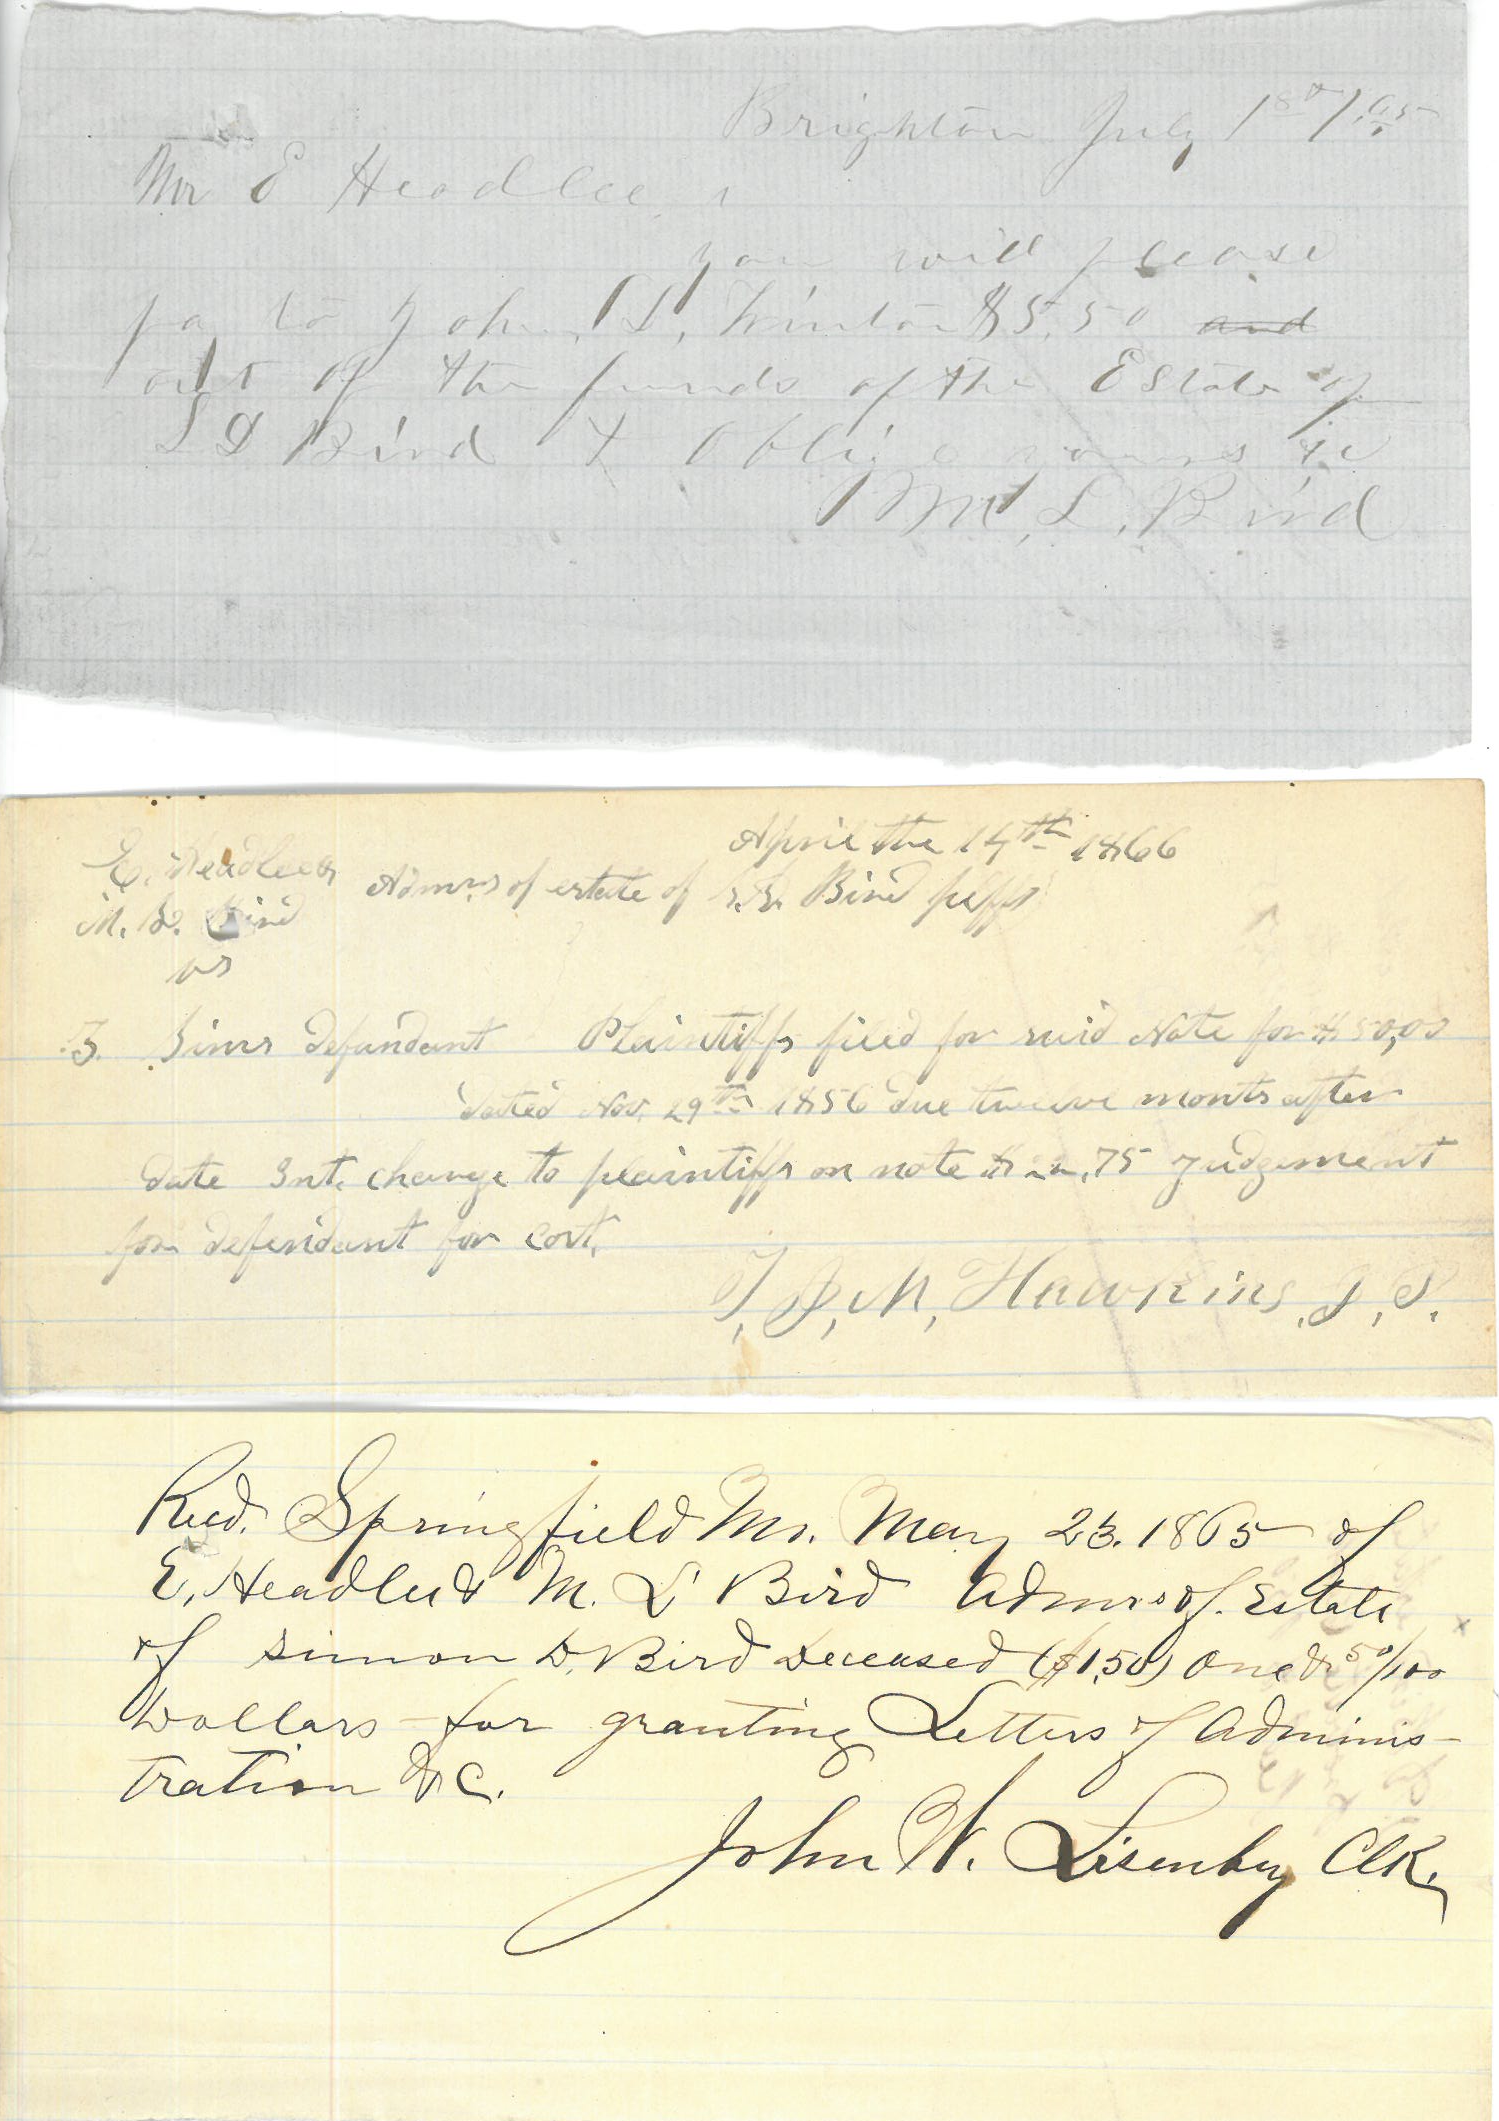 Brighton July 1st /65
Mr E Headlee
you will please
pa to John L, Winton $5.50 and
out of the funds of the Estate of
S D Bird & Oblige yours &c
M, L, Bird
April the 14th 1866
E. Headlee &
Admrs of estate of S.D. Bird plffs
M. L. Bird
vs
Sims defendant Plaintiffs filed for suid Note for $50,00
dated Nov. 29th 1856 due twelve monts after
date Int. charge to plaintiffs on note $ .75 Judgement
for defendant for cost.
T, J, M, Hawkins, J, P,
Recd. Springfield Mo. May 23. 1865 of
E, Headlee & M. L Bird Admrs of. Estate
of Simon D. Bird Deceased ($1,50) One & 50/100
Dollars for granting Letters of Adminis-
tration &C.
John W. Lisenby Clk,